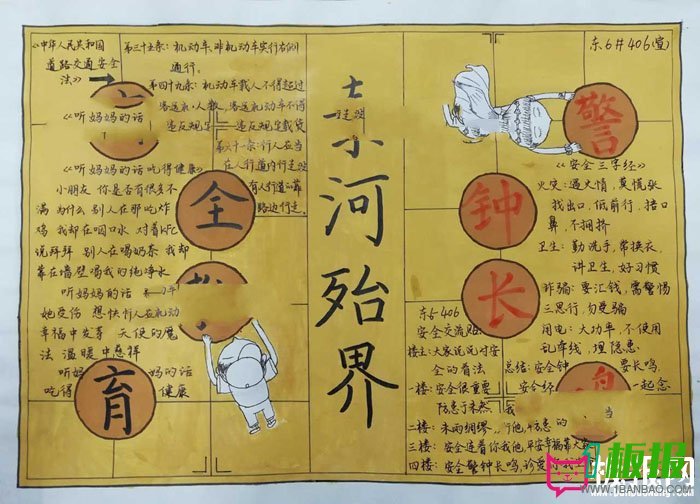 《中华人民共和国
道路交通安全
法》
第三十五条：机动车、非机动车实行右侧
通行。
第四十九条：机动车载人不得超过
客运机动车不得
违反规定载货
第六十一条：行人应当
在人行道内行走
有人行道的靠
路边行走。
《听妈妈的话
《听妈妈的话吃得健康》
小朋友 你是否有很多不
满 为什么 别人在那吃炸
鸡 我却在咽口水 对着KFC
说拜拜 别人在喝奶茶 我却
靠在墙壁喝我的纯净水
听妈妈的话
她受伤 想快
幸福中发芽 天使的魔
法 温暖中慈祥
听妈
妈的话
吃得
健康
全
育
河
殆
界
东6#406(宣)
警
钟
长
《安全三字经》
火灾：遇火情，莫慌张
找出口，低前行，捂口
鼻，不拥挤
卫生：勤洗手，常换衣，
讲卫生，好习惯
诈骗：要汇钱，需警惕
三思行，勿受骗
用电：大功率，不使用
乱牵线，埋隐患
总结：安全钟
长鸣，
安全经
一起念
东6-406
安全交流
楼主：大家说说对安
全的看法
一楼：安全很重要
防患于未然
二楼：未雨绸缪
三楼：安全连着你我他，平安幸福靠大家
四楼：安全警钟长鸣
板报
WWW.1BANBAO.COM